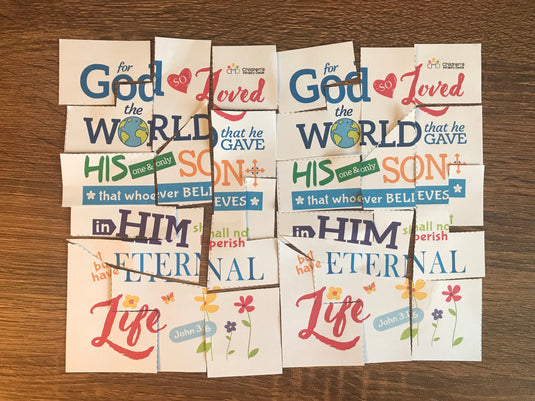 for
God so Loved
Children's
Ministry Deals
the
WORLD
that he
GAVE
HIS one & only SON
that whoever BELIEVES
in HIM shall not
perish
but
have ETERNAL
Life
John 3:16
for
God so Loved
Children's
Ministry Deals
the
WORLD
that he
GAVE
HIS one & only SON
that whoever BELIEVES
in HIM shall not
perish
but
have ETERNAL
Life
John 3:16